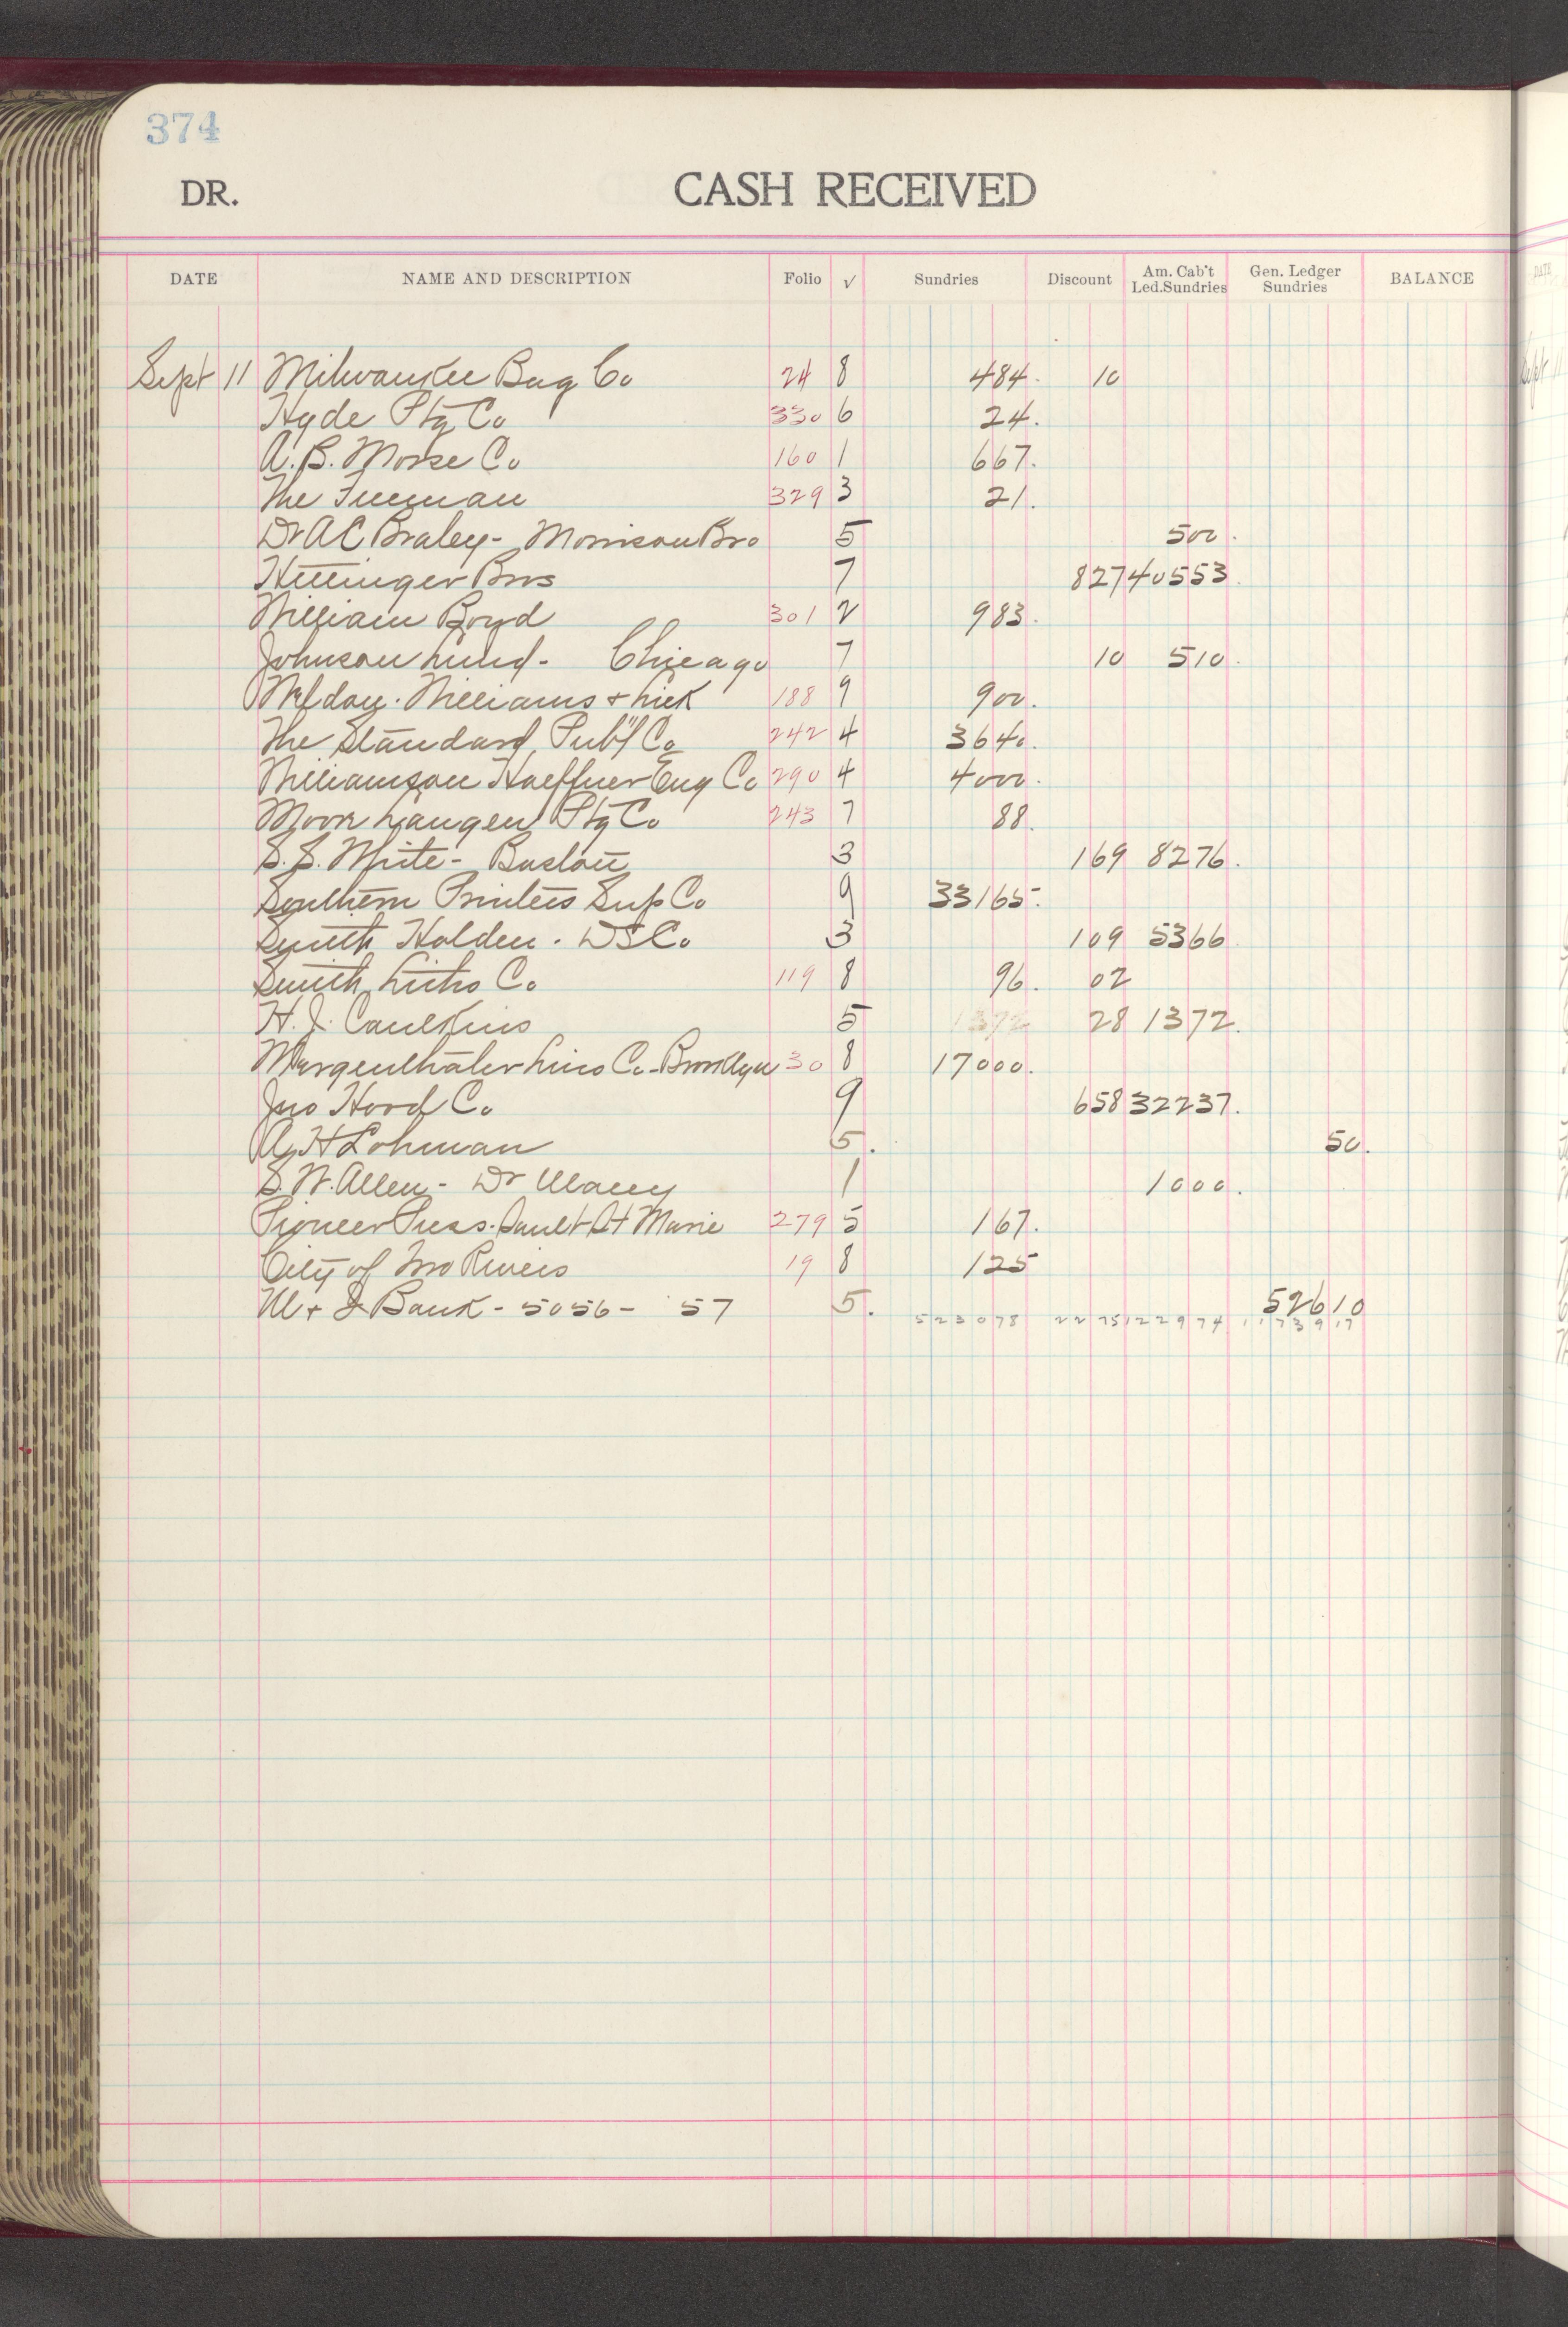 374
DR. CASH RECEIVED
DATE NAME AND DESCRIPTION Folio √ Sundries Discount Am. Cab't Led.Sundries Gen. Ledger Sundries BALANCE
Sept 11 Milwaukee Bag Co 24 8 484. 10
Hyde Ptg Co 330 6 24.
A. B. Morse Co 160 1 667.
The Freeman 329 3 21.
Dr A C Braley - Morrison Bro 5 500.
Hettinger Bros 7 827 40553
William Boyd 301 2 983.
Johnson Lund - Chicago 7 10 510.
Williams & Lick 188 9 900.
The Standard Pub'l Co 242 4 3640.
Williamson Haeffner Eng Co 290 4 4000.
Moon Langen Ptg Co 243 7 88.
S. S. White - Boston 3 169 8276.
Southern Printers Sup Co 9 33165.
Smith Holden - DS Co 3 109 5366
Smith Litho Co 119 8 96. 02
H. J. Caulkins 5 1372 28 1372.
Mergenthaler Lino Co - Brooklyn 30 8 17000.
Jno Hood Co 9 658 32237.
A H Lohman 5. 50.
S. W. Allen - Dr 1 1000.
Pioneer Press. Sault St Marie 279 5 167.
City of Two Rivers 19 8 125
M & I Bank - 5056 - 57 5. 52610
523078 2275 122974 117391 7